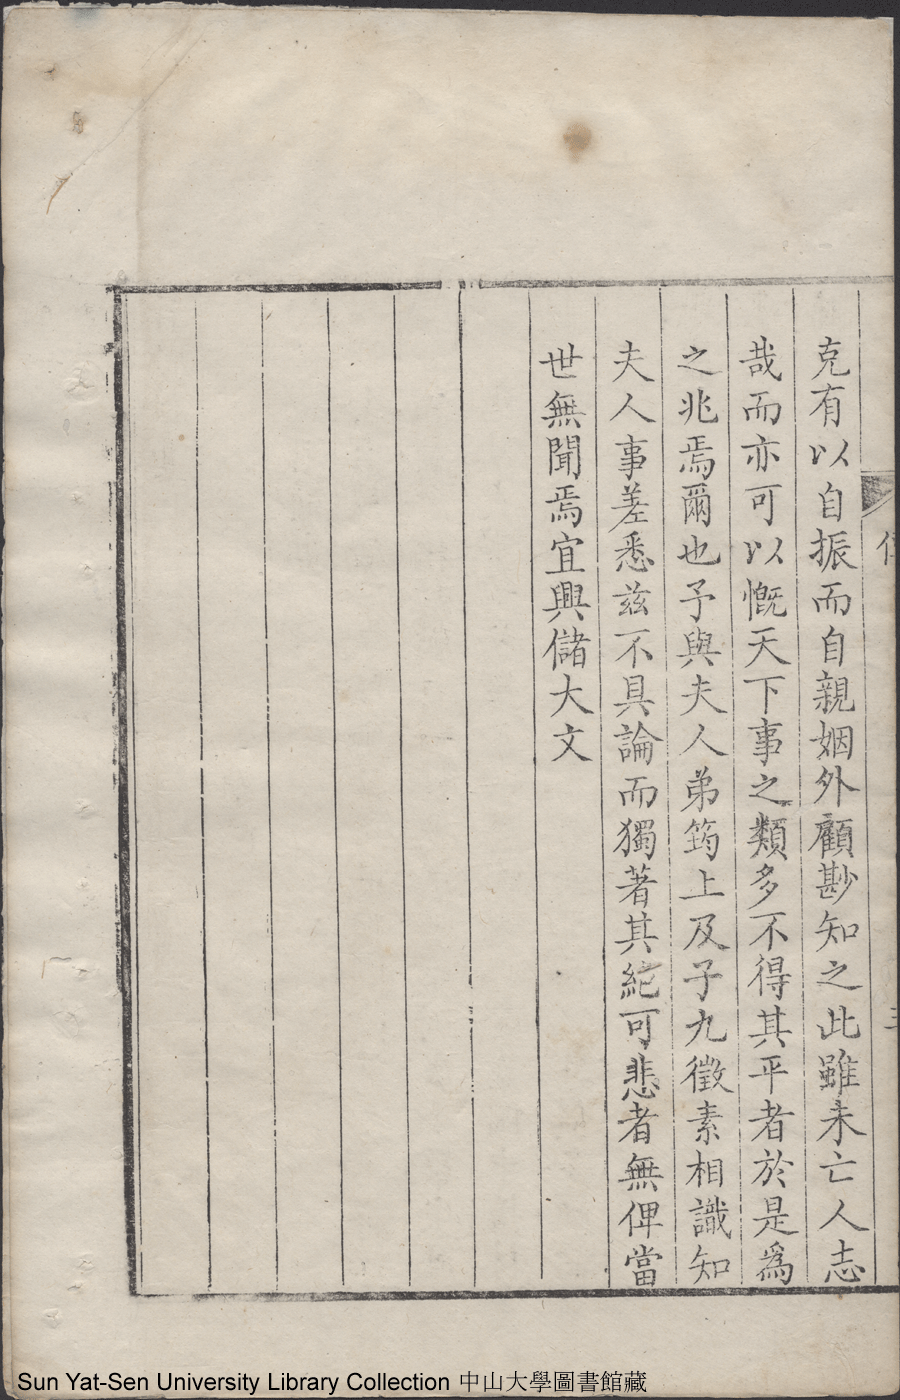 克有以自振而自親姻外顧尠知之此雖未亡人志
哉而亦可以慨天下事之類多不得其平者於是爲
之兆焉爾也予與夫人弟筠上及子九徵素相識知
夫人事差悉兹不具論而獨著其紀可悲者無俾當
世無聞焉宜興儲大文
Sun Yat-Sen University Library Collection 中山大學圖書館藏